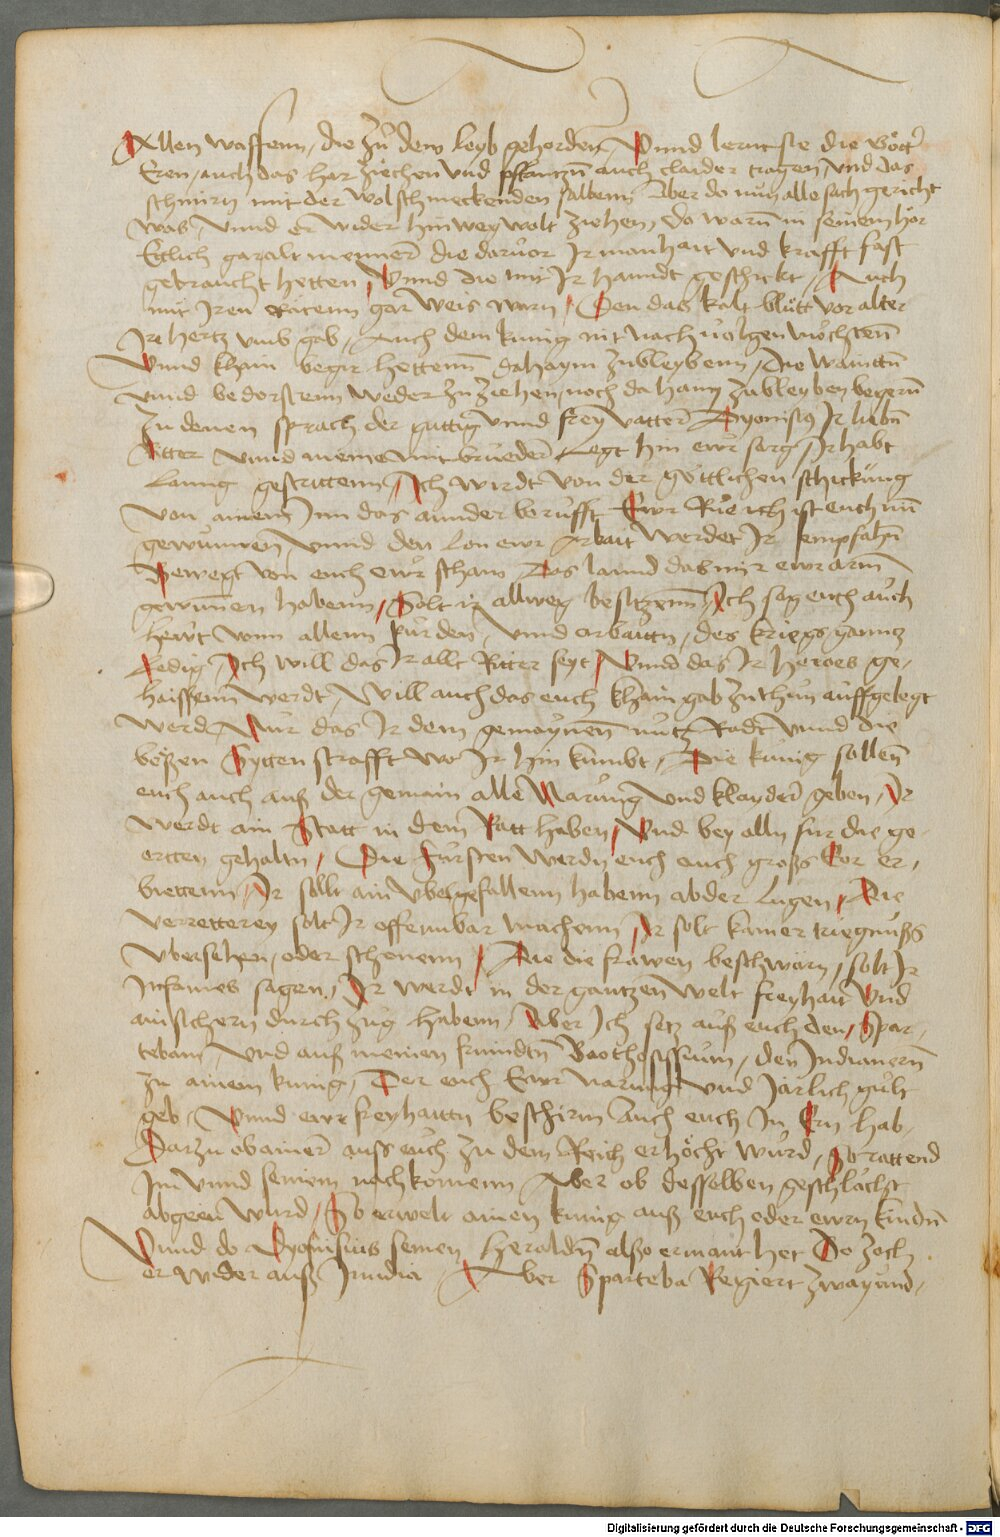 Allen waffenn, die zu dem leyb gehorden, Vnnd lernt sie die götter
Eren, auch das har ziechen vnd pflantzen auch claider tragen vnd das
schmirn mit der wolschmeckenden salbenn Aber do nun alle sach gericht
was, vnnd er wider hinweg wolt ziehen, do warn in seinem hör
Etlich gar alt menner die daruor Ir manhait vnd krafft fast
gebraucht hetten, Vnnd die mit Ir hanndt geschickt, Auch
mit Iren rätenn gar weis warn, Den das kalt blutt vor alter
Ire hertz vmb gab, Auch dem kunig nit nach uolgen mochtenn
Vnnd klain begir hettenn dahaym zubleybenn, Die waintten
vnnd bedorfftenn weder zu ziehen, noch dahaym zubleyben begern
Zu denen sprach der guttig vnnd frey vatter Dyonisio Ir lieben
Ritter vnnd meine mitbrueder Legt hin ewr sorg Ir habt
lanng gestrittenn, Ich wirdt von der göttlichen schickung
von ainem Inn das annder berufft Ewr Rue ich ist euch nun
gewunnen, vnnd den lon ewr Arbait werdet Ir empfahen
Bewegt von euch ewr scham Das lannd das mir ewr arm
gewunnen habenn, Solt ir allweg besitzenn, Ich sag euch auch
hewt vonn allenn purden, vnnd arbaitten, des kriegs ganntz
Ledig, Ich will das Ir allt Ritter seyt, Vnnd das Ir heroes ge-
haissenn werdt, Will auch das euch khain gab zuthun auffgelegt
werde, Nur das Ir dem gemaynen nutz Radt vnnd die
bösen Sytten strafft wo Ir hin kumbt, Die kunig sollenn
euch auch auß der gemain alle Narung vnd klayder geben, Ir
werdt ain Statt in dem Ratt haben, Vnd bey alln fur die ge-
ertten gehaltn, Die Fürsten werdn euch auch groß Eer er-
biettenn, Ir sollt ain vbelgefallenn habenn ab der lugen, Die
verretterey solt Ir offennbar machenn, Ir solt kainer triegnuß
vbersehen, oder schonenn, Die die frawen beschwärn, solt Ir
Infames sagen, Ir werdt in der gantzen welt freyhait Vnd
ain sichern durchzug habenn, Aber Ich setz auß euch den, Spar-
tebam, vnd auß meinen freundtn Boothosissum, den Indianern
zu ainem kunig, Der euch Ewr narung vnd Järlich gult
geb, Vnnd ewr freyhaittn beschirm Auch euch In Ern hab,
Darzu ob ainer auss euch zu dem Reich erhöcht wurd, So rattend
Im vnnd seinem nachkomenn Aber ob desselben geschlächt
abgeen wurd, So erwelt ainen kunig auß euch oder ewrn kindn
Vnnd do Dyonisius seinen heraldn also ermant het Do zoch
er wider auß Inndia Aber Sparteba Regiert zway vnd,
Digitalisierung gefördert durch die Deutsche Forschungsgemeinschaft - DFG